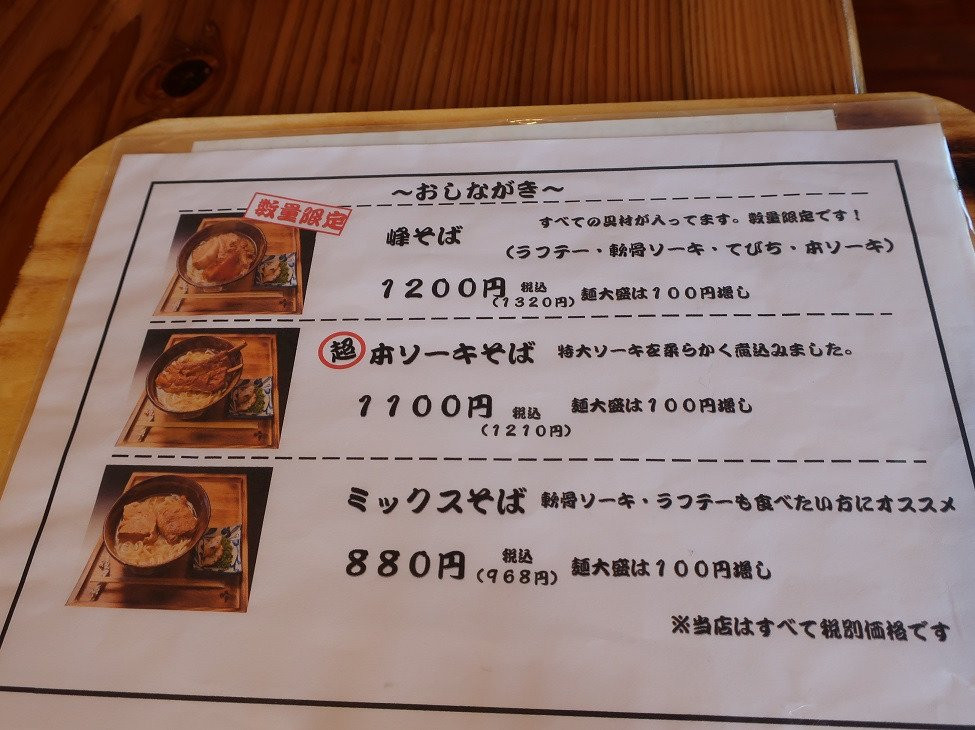 ～おしながき～
数量限定
峰そば
すべての具材が入ってます。数量限定です！
（ラフテー・軟骨ソーキ・てびち・本ソーキ）
１２００円 税込 麺大盛は１００円増し
（１３２０円）
超 本ソーキそば 特大ソーキを柔らかく煮込みました。
１１００円 税込 麺大盛は１００円増し
（１２１０円）
ミックスそば 軟骨ソーキ・ラフテーも食べたい方にオススメ
８８０円 税込 麺大盛は１００円増し
（９６８円）
※当店はすべて税別価格です